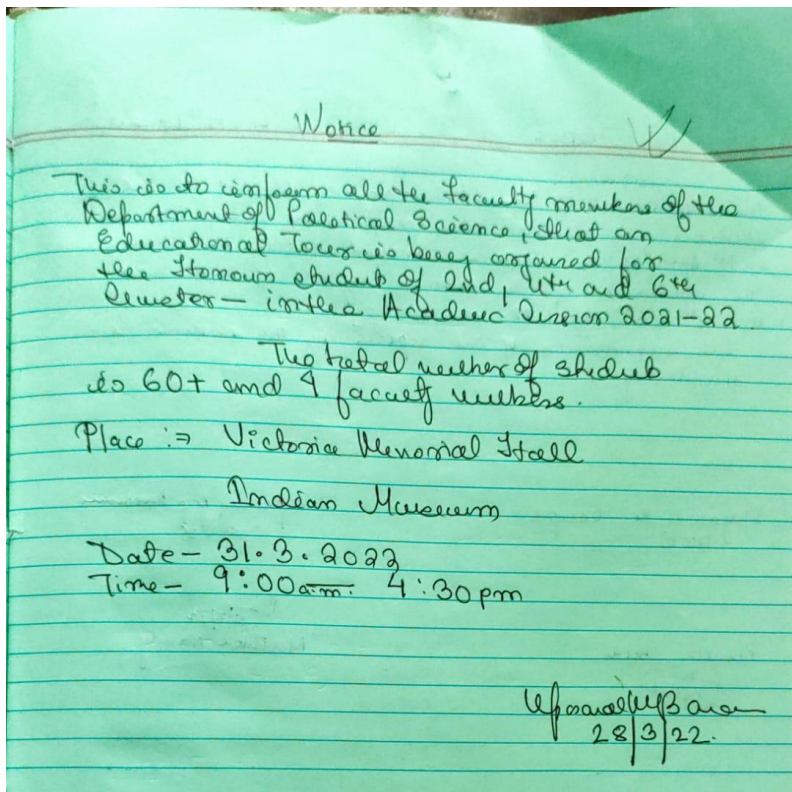 Notice
This is to inform all the faculty members of the
Department of Political Science, that an
Educational Tour is being organised for
the Honours students of 2nd, 4th and 6th
Semester - in the Academic Session 2021-22.
The total number of students
is 60+ and 4 faculty members.
Place :⇒ Victoria Memorial Hall
Indian Museum
Date - 31.3.2022
Time - 9:00 a.m. 4:30 pm
28/3/22.